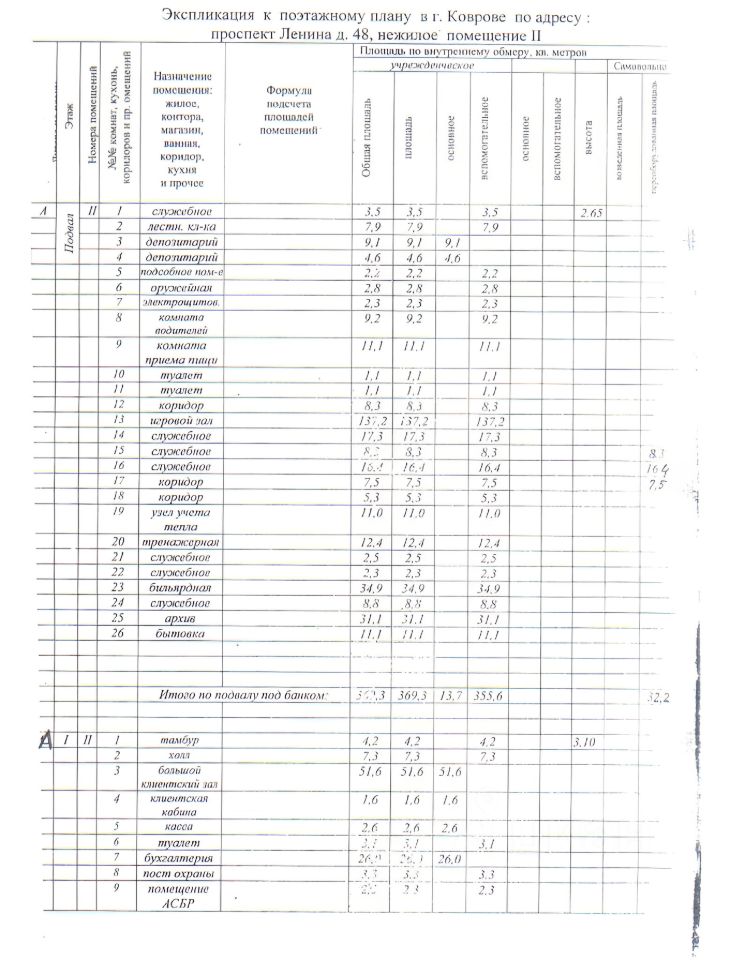 Экспликация к поэтажному плану в г. Коврове по адресу :
проспект Ленина д. 48, нежилое помещение II
Площадь по внутреннему обмеру, кв. метров
учрежденческое Самовольно
Этаж
Номера помещений
№№ комнат, кухонь,
коридоров и пр. омещений
Назначение
помещения:
жилое,
контора,
магазин,
ванная,
коридор,
кухня
и прочее
Формула
подсчета
площадей
помещений
Общая площадь
площадь
основное
вспомогательное
основное
вспомогательное
высота
возведенная площадь
площадь
А Подвал II 1 служебное 3,5 3,5 3,5 2.65
2 лестн. кл-ка 7,9 7,9 7,9
3 депозитарий 9,1 9,1 9,1
4 депозитарий 4,6 4,6 4,6
5 подсобное пом-е 2,2 2,2 2,2
6 оружейная 2,8 2,8 2,8
7 электрощитов. 2,3 2,3 2,3
8 комната 9,2 9,2 9,2
водителей
9 комната 11,1 11,1 11,1
приема пищи
10 туалет 1,1 1,1 1,1
11 туалет 1,1 1,1 1,1
12 коридор 8,3 8,3 8,3
13 игровой зал 137,2 137,2 137,2
14 служебное 17,3 17,3 17,3
15 служебное 8,3 8,3 8,3 8.3
16 служебное 16,4 16,4 16,4 16 4
17 коридор 7,5 7,5 7,5 7,5
18 коридор 5,3 5,3 5,3
19 узел учета 11,0 11,0 11,0
тепла
20 тренажерная 12,4 12,4 12,4
21 служебное 2,5 2,5 2,5
22 служебное 2,3 2,3 2,3
23 бильярдная 34,9 34,9 34,9
24 служебное 8,8 8,8 8,8
25 архив 31,1 31,1 31,1
26 бытовка 11,1 11,1 11,1
Итого по подвалу под банком: 369,3 13,7 355,6 32,2
А I II 1 тамбур 4,2 4,2 4,2 3,10
2 холл 7,3 7,3 7,3
3 большой 51,6 51,6 51,6
клиентский зал
4 клиентская 1,6 1,6 1,6
кабина
5 касса 2,6 2,6 2,6
6 туалет 3,1 3,1
7 бухгалтерия 26,0 26,0
8 пост охраны 3,3 3,3 3.3
9 помещение 2.3 2.3
АСБР